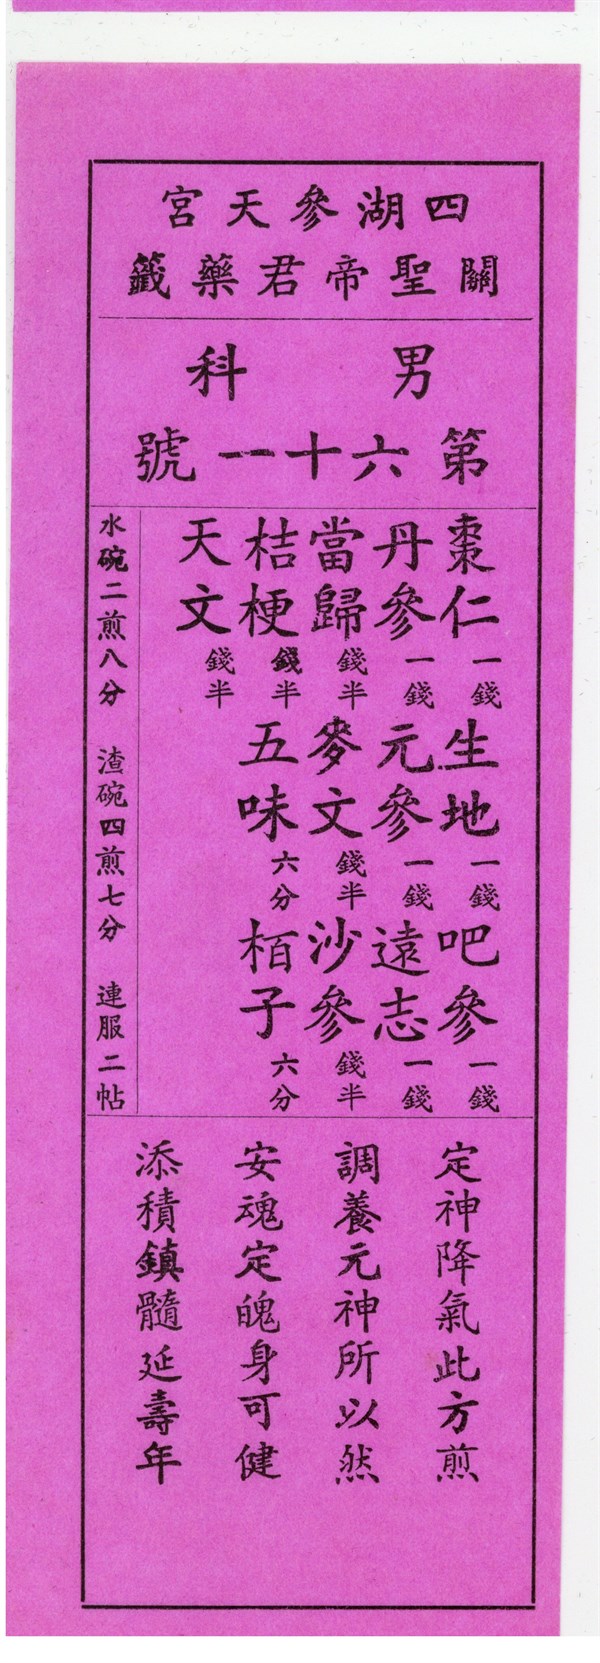 四湖參天宮
關聖帝君藥籤
男科
第六十一號
棗仁一錢 生地一錢 吧參一錢
丹參一錢 元參一錢 遠志一錢
當歸錢半 麥文錢半 沙參錢半
桔梗錢半 五味六分 栢子六分
天文錢半
水碗二煎八分 渣碗四煎七分 連服二帖
定神降氣此方煎
調養元神所以然
安魂定魄身可健
添積鎮髓延壽年